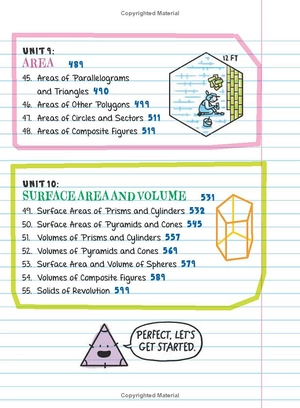 Copyrighted Material
UNIT 9:
AREA 489
45. Areas of Parallelograms
and Triangles 490
46. Areas of Other Polygons 499
47. Areas of Circles and Sectors 511
48. Areas of Composite Figures 519
12 FT
UNIT 10:
SURFACE AREA AND VOLUME 531
49. Surface Areas of Prisms and Cylinders 532
50. Surface Areas of Pyramids and Cones 545
51. Volumes of Prisms and Cylinders 557
52. Volumes of Pyramids and Cones 569
53. Surface Area and Volume of Spheres 579
54. Volumes of Composite Figures 589
55. Solids of Revolution 599
PERFECT, LET'S
GET STARTED.
Copyrighted Material